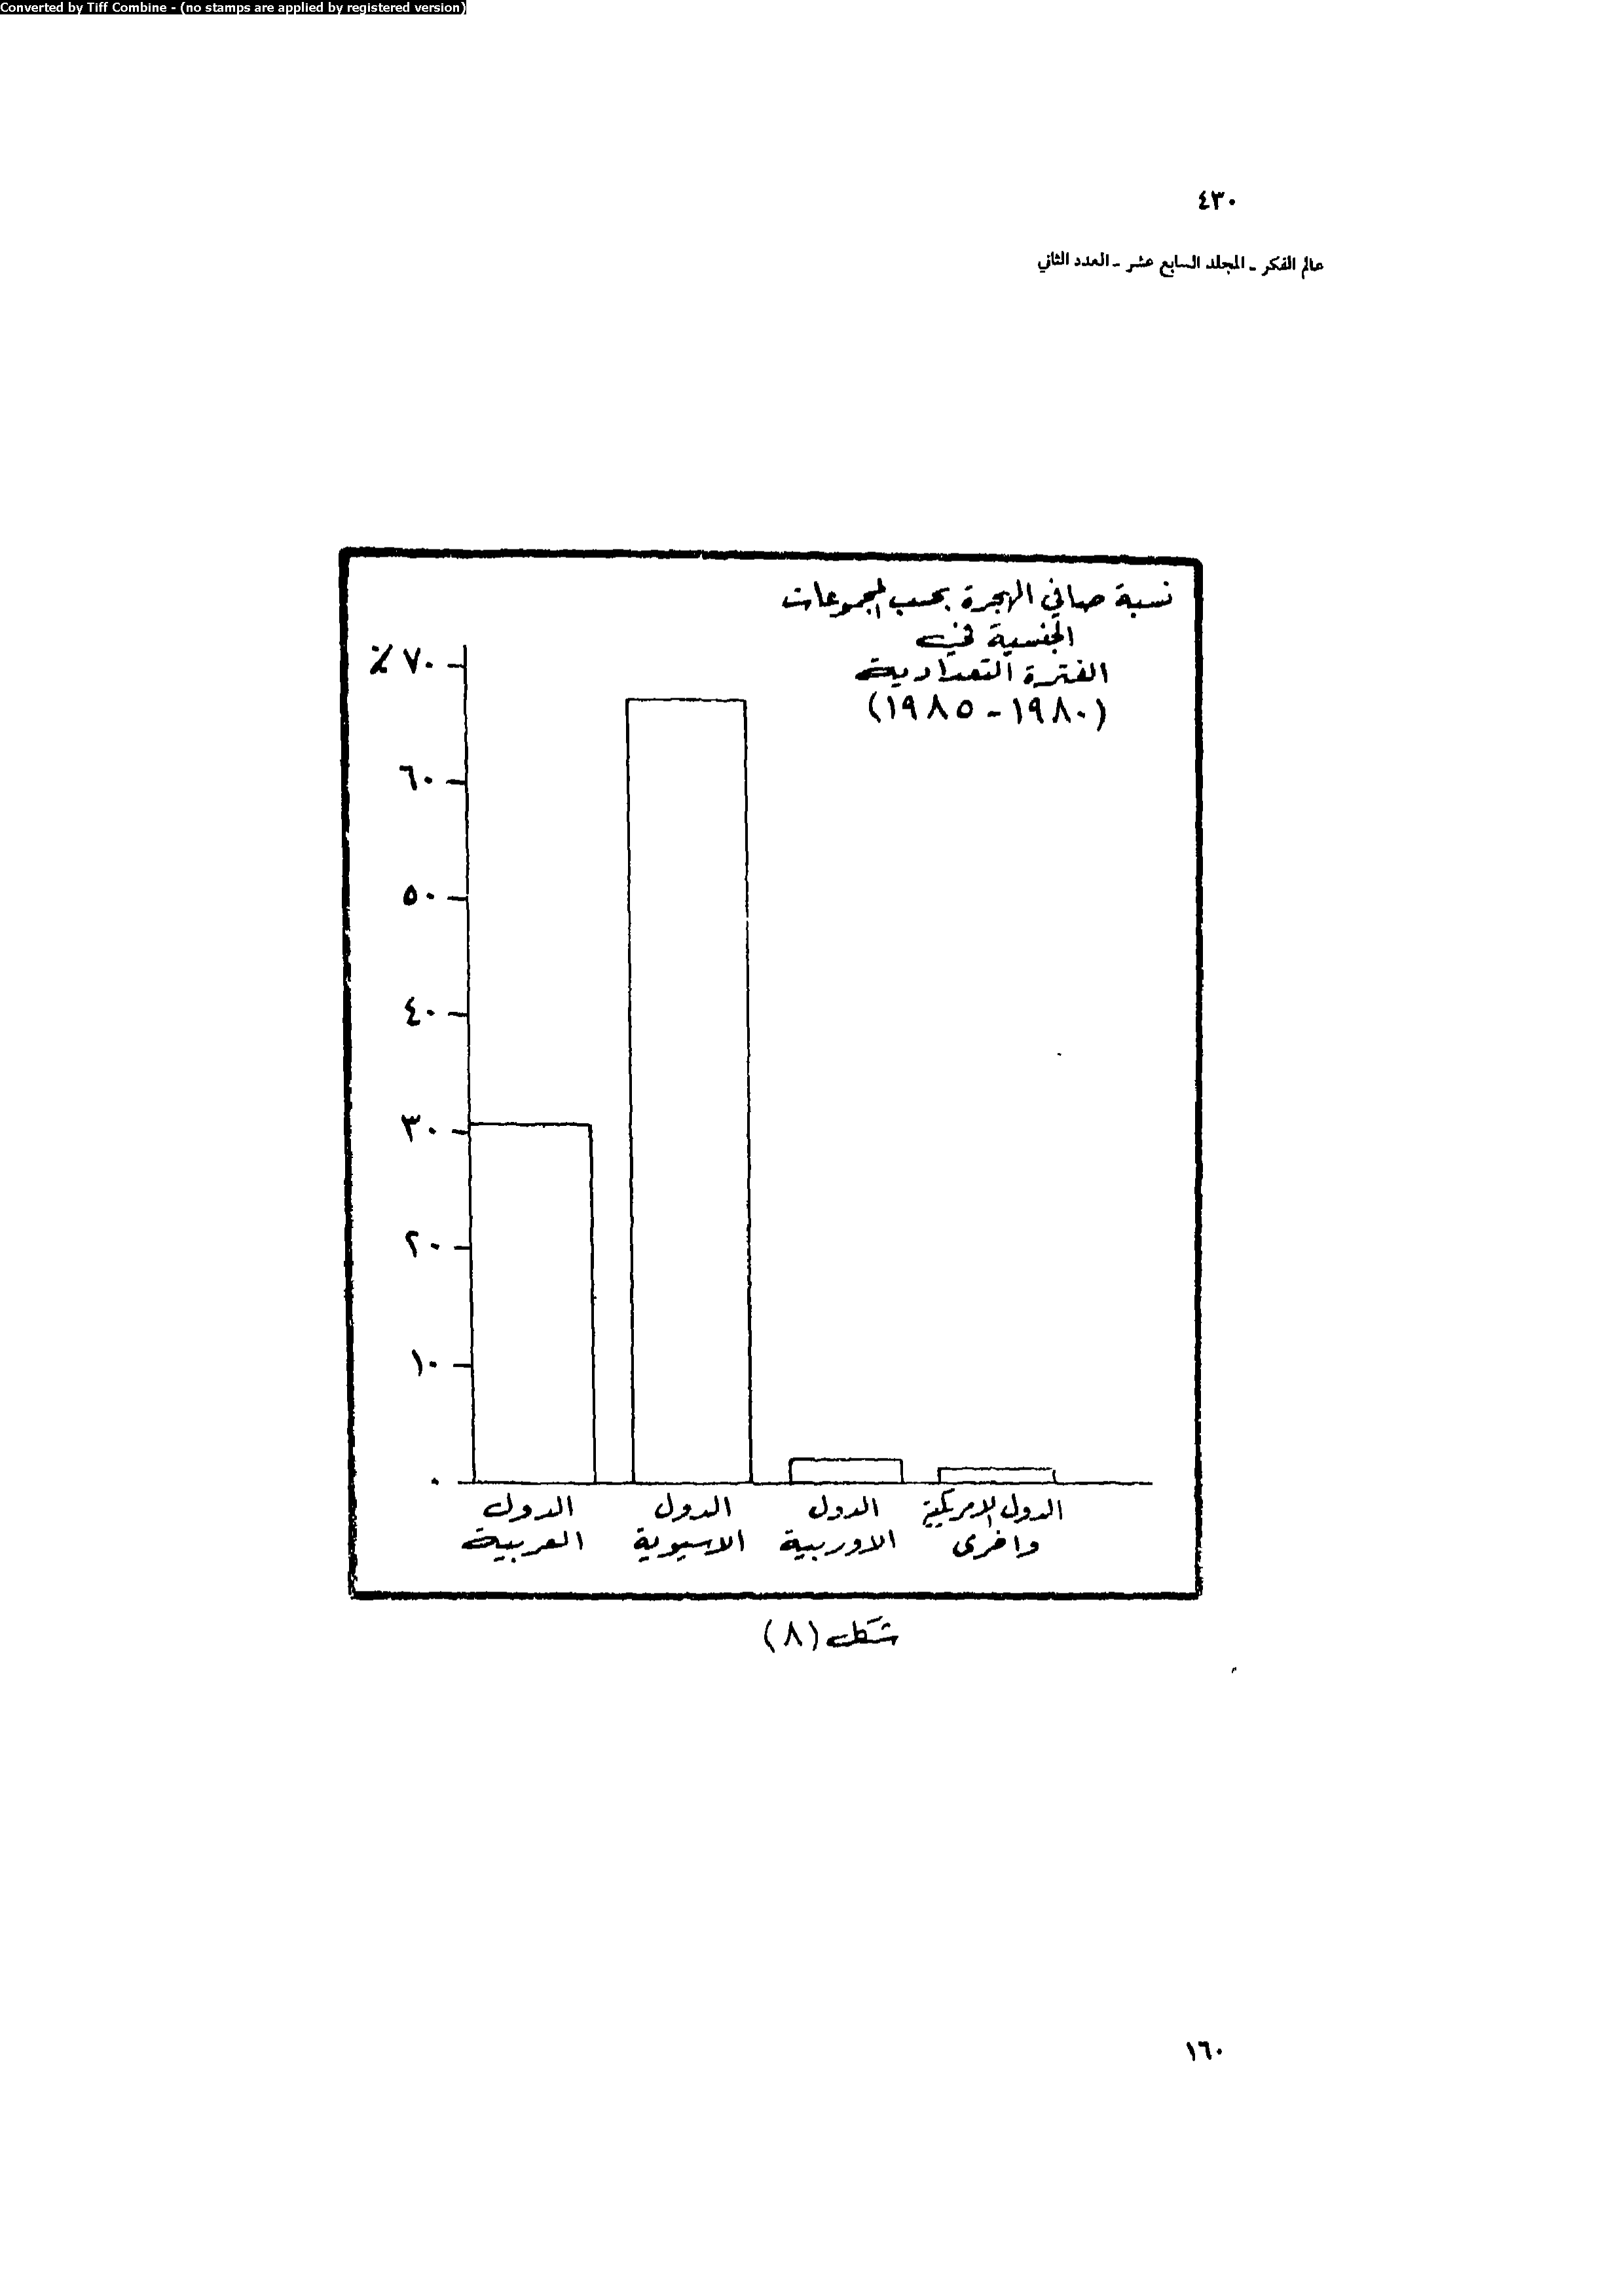 Converted by Tiff Combine - (no stamps are applied by registered version)
٤٣٠
عالم الفكر ـ المجلد السابع عشر ـ العدد الثاني
نسبة صافي الهجرة بحسب المجموعات
الجنسية في
الفترة التعدادية
(١٩٨٠-١٩٨٥)
٪ ٧٠
٦٠
٥٠
٤٠
٣٠
٢٠
١٠
٠
الدول العربية
الدول الاسيوية
الدول الاوربية
الدول الامريكية واخرى
شكل (٨)
١٦٠